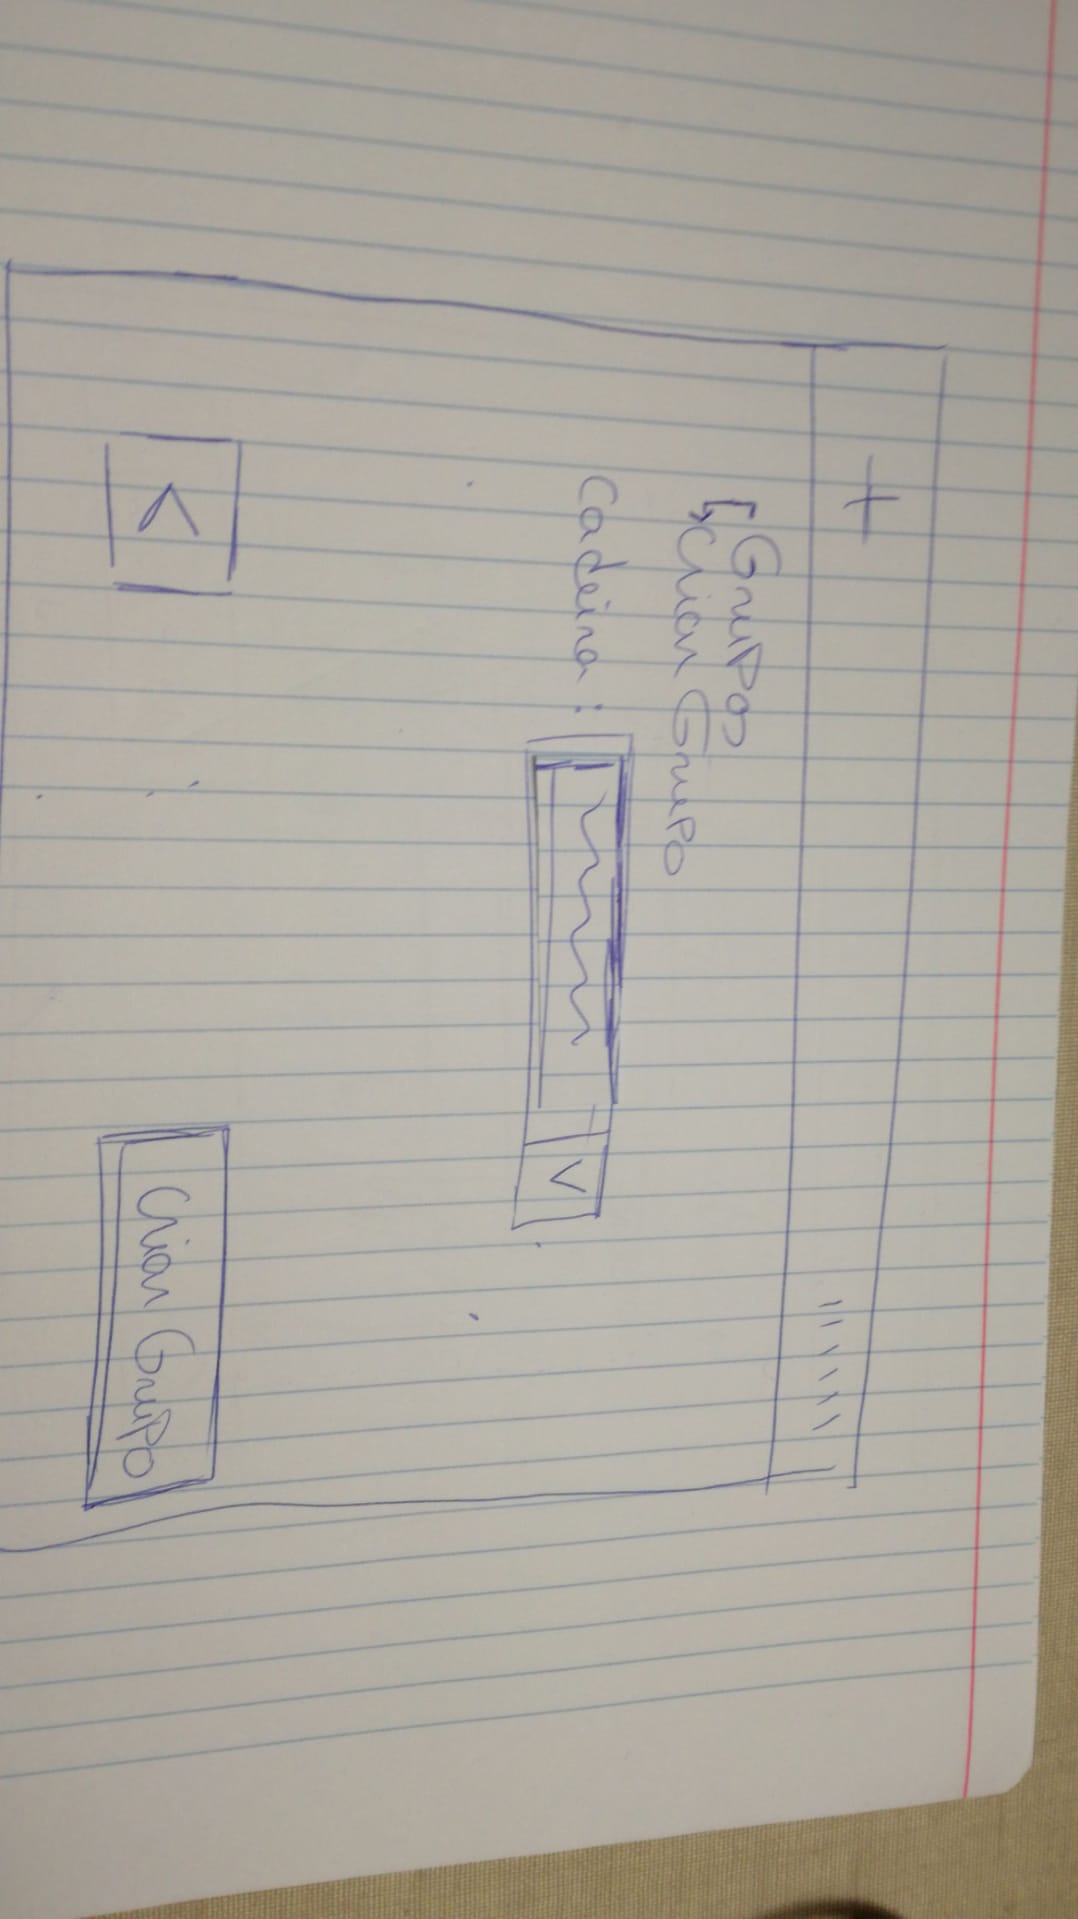 Grupos
Criar Grupo
Cadeira:
V
<
Criar Grupo